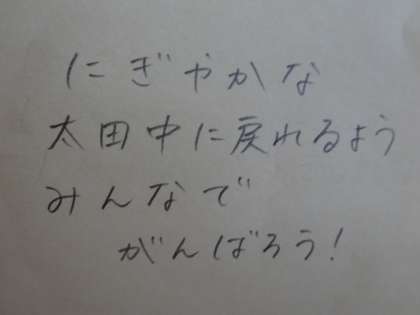 にぎやかな
太田中に戻れるよう
みんなで
がんばろう!